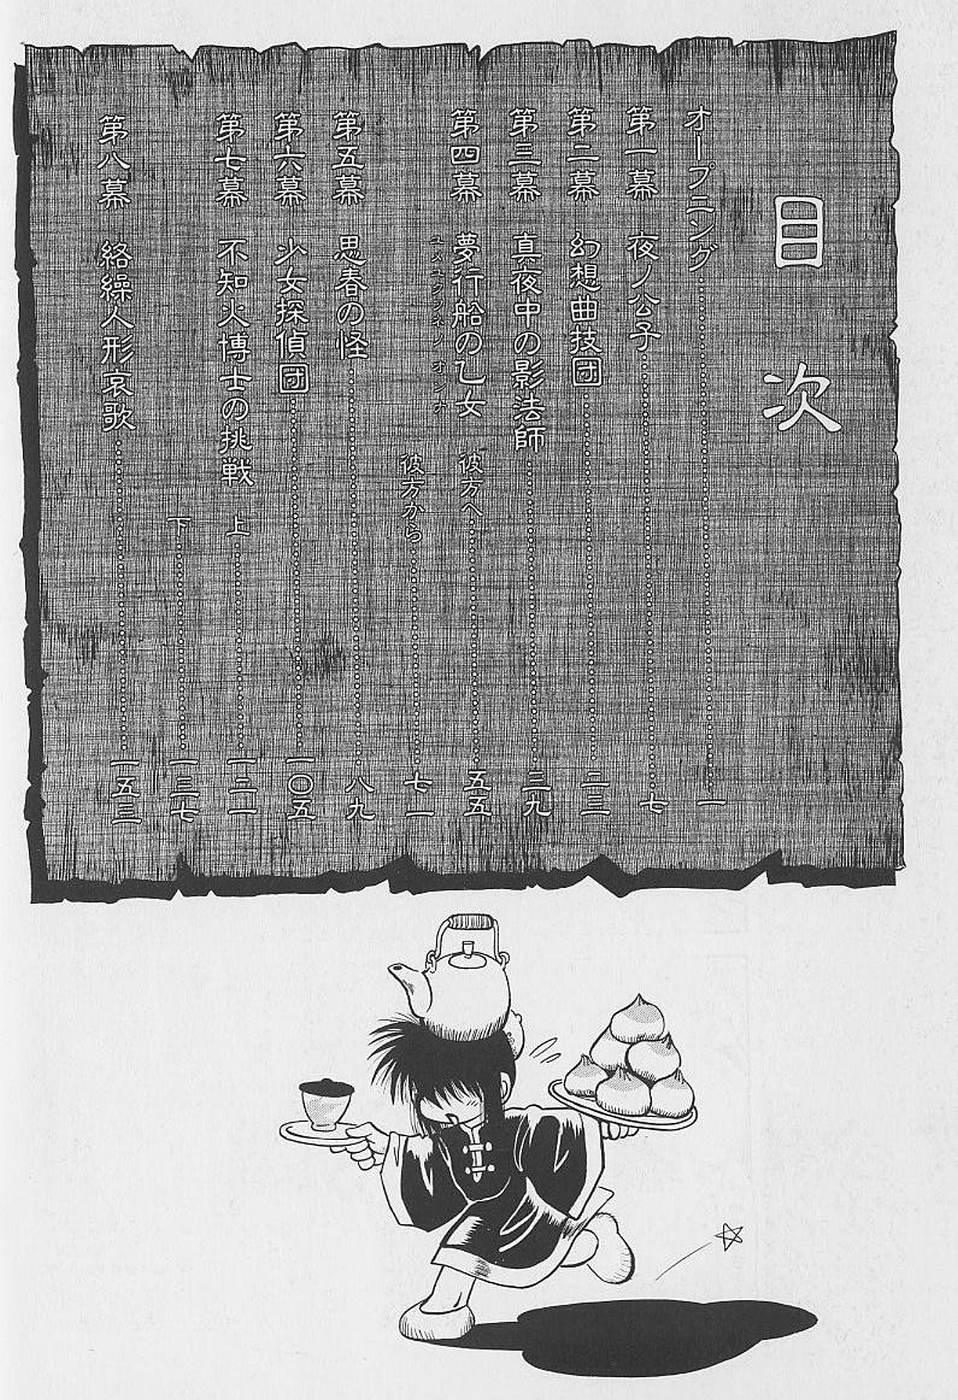 目次
オープニング 一
第一幕 夜ノ公子 七
第二幕 幻想曲技団 二三
第三幕 真夜中の影法師 三九
第四幕 夢行船の乙女 彼方へ 五五
ユメユクフネノ オンナ
彼方から 七一
第五幕 思春の怪 八九
第六幕 少女探偵団 一〇五
第七幕 不知火博士の挑戦 上 一二一
下 一三七
第八幕 絡繰人形哀歌 一五三